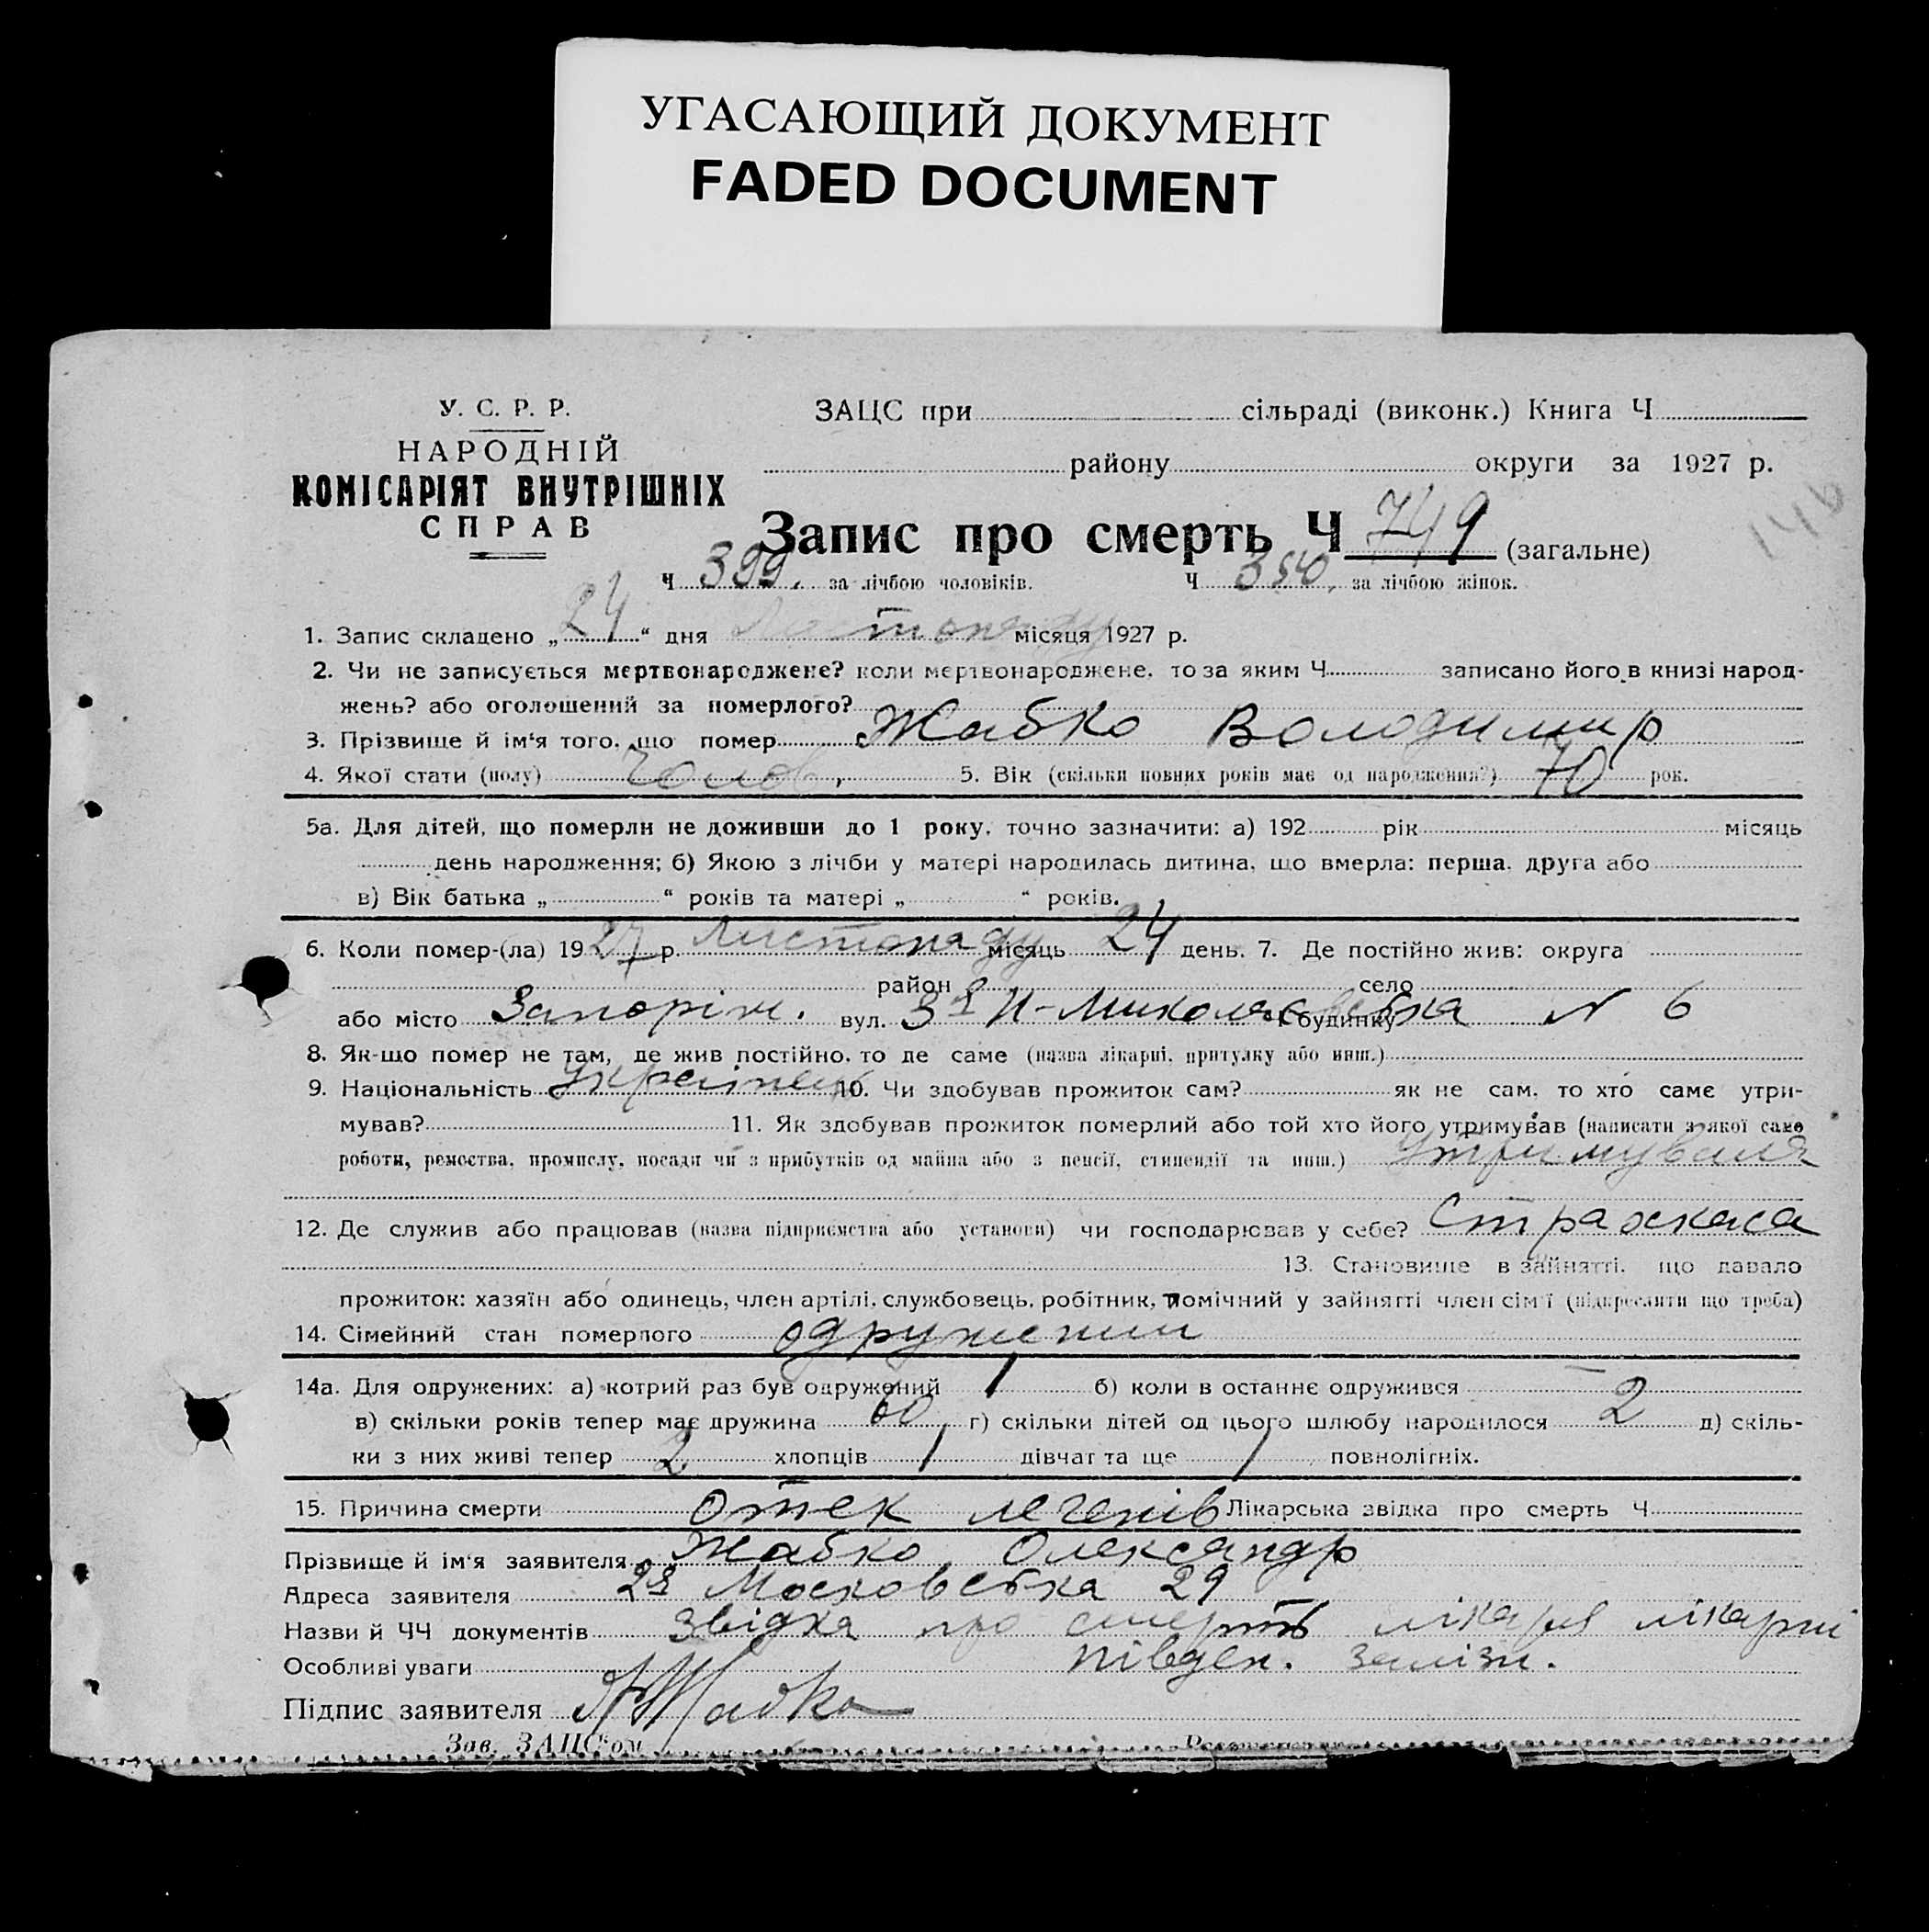 УГАСАЮЩИЙ ДОКУМЕНТ
FADED DOCUMENT
У. С. Р. Р.
НАРОДНІЙ
КОМІСАРІЯТ ВНУТРІШНІХ
СПРАВ
ЗАЦС при сільраді (виконк.) Книга Ч
району округи за 1927 р.
146
Запис про смерть Ч 749 (загальне)
Ч 399. за лічбою чоловіків. Ч 350, за лічбою жінок.
1. Запис складено „ 24 “ дня Листопаду місяця 1927 р.
2. Чи не записується мертвонароджене? коли мертвонароджене, то за яким Ч записано його в книзі народ-
жень? або оголошений за померлого?
3. Прізвище й ім'я того, що помер Жабко Володимир
4. Якої стати (полу) Чолов. 5. Вік (скільки повних років має од народження?) 70 рок.
5а. Для дітей, що померли не доживши до 1 року, точно зазначити: а) 192 рік місяць
день народження; б) Якою з лічби у матері народилась дитина, що вмерла: перша, друга або
в) Вік батька „ “ років та матері „ “ років.
6. Коли помер-(ла) 1927 р. Листопаду місяць 24 день. 7. Де постійно жив: округа
район село
або місто Запоріж. вул. 3я Н-Миколаєвська Ч будинку N 6
8. Як-що помер не там, де жив постійно, то де саме (назва лікарні, притулку або инш.)
9. Національність Українец 10. Чи здобував прожиток сам? як не сам, то хто саме утри-
мував? 11. Як здобував прожиток померлий або той хто його утримував (написати з якої саме
роботи, ремества, промислу, посади чи з прибутків од майна або з пенсії, стипендії та инш.) Утримувала
12. Де служив або працював (назва підприємства або установи) чи господарював у себе? Страхкаса
13. Становище в зайнятті, що давало
прожиток: хазяїн або одинець, член артілі, службовець, робітник, помічний у зайнятті член сім'ї (підкреслити що треба)
14. Сімейний стан померлого одружений
14а. Для одружених: а) котрий раз був одружений 1 б) коли в останнє одружився —
в) скільки років тепер має дружина 60 г) скільки дітей од цього шлюбу народилося 2 д) скіль-
ки з них живі тепер 2 хлопців 1 дівчат та ще 1 повнолітніх.
15. Причина смерти отек легенів Лікарська звідка про смерть Ч
Прізвище й ім'я заявителя Жабко Олександр
Адреса заявителя 2я Московська 29
Назви й ЧЧ документів Звідка про смерть лікаря лікарні
Особливі уваги півден. залізн.
Підпис заявителя АЖабко
Зав. ЗАЦС'ом